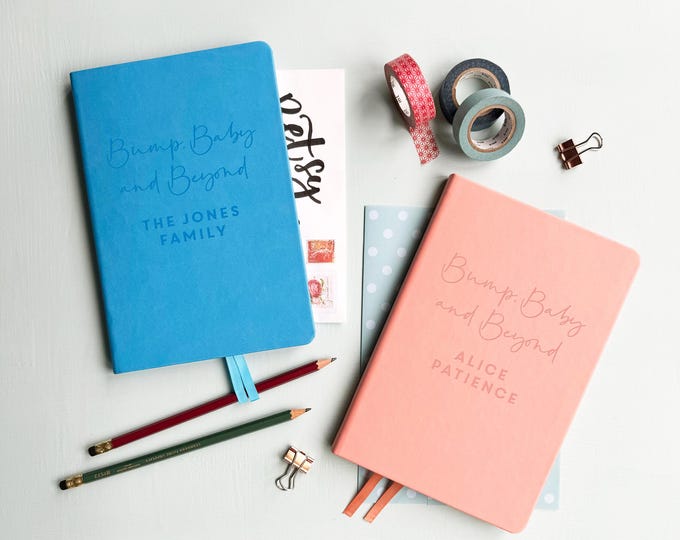 Bump, Baby
and Beyond
THE JONES
FAMILY
Bump, Baby
and Beyond
ALICE
PATIENCE